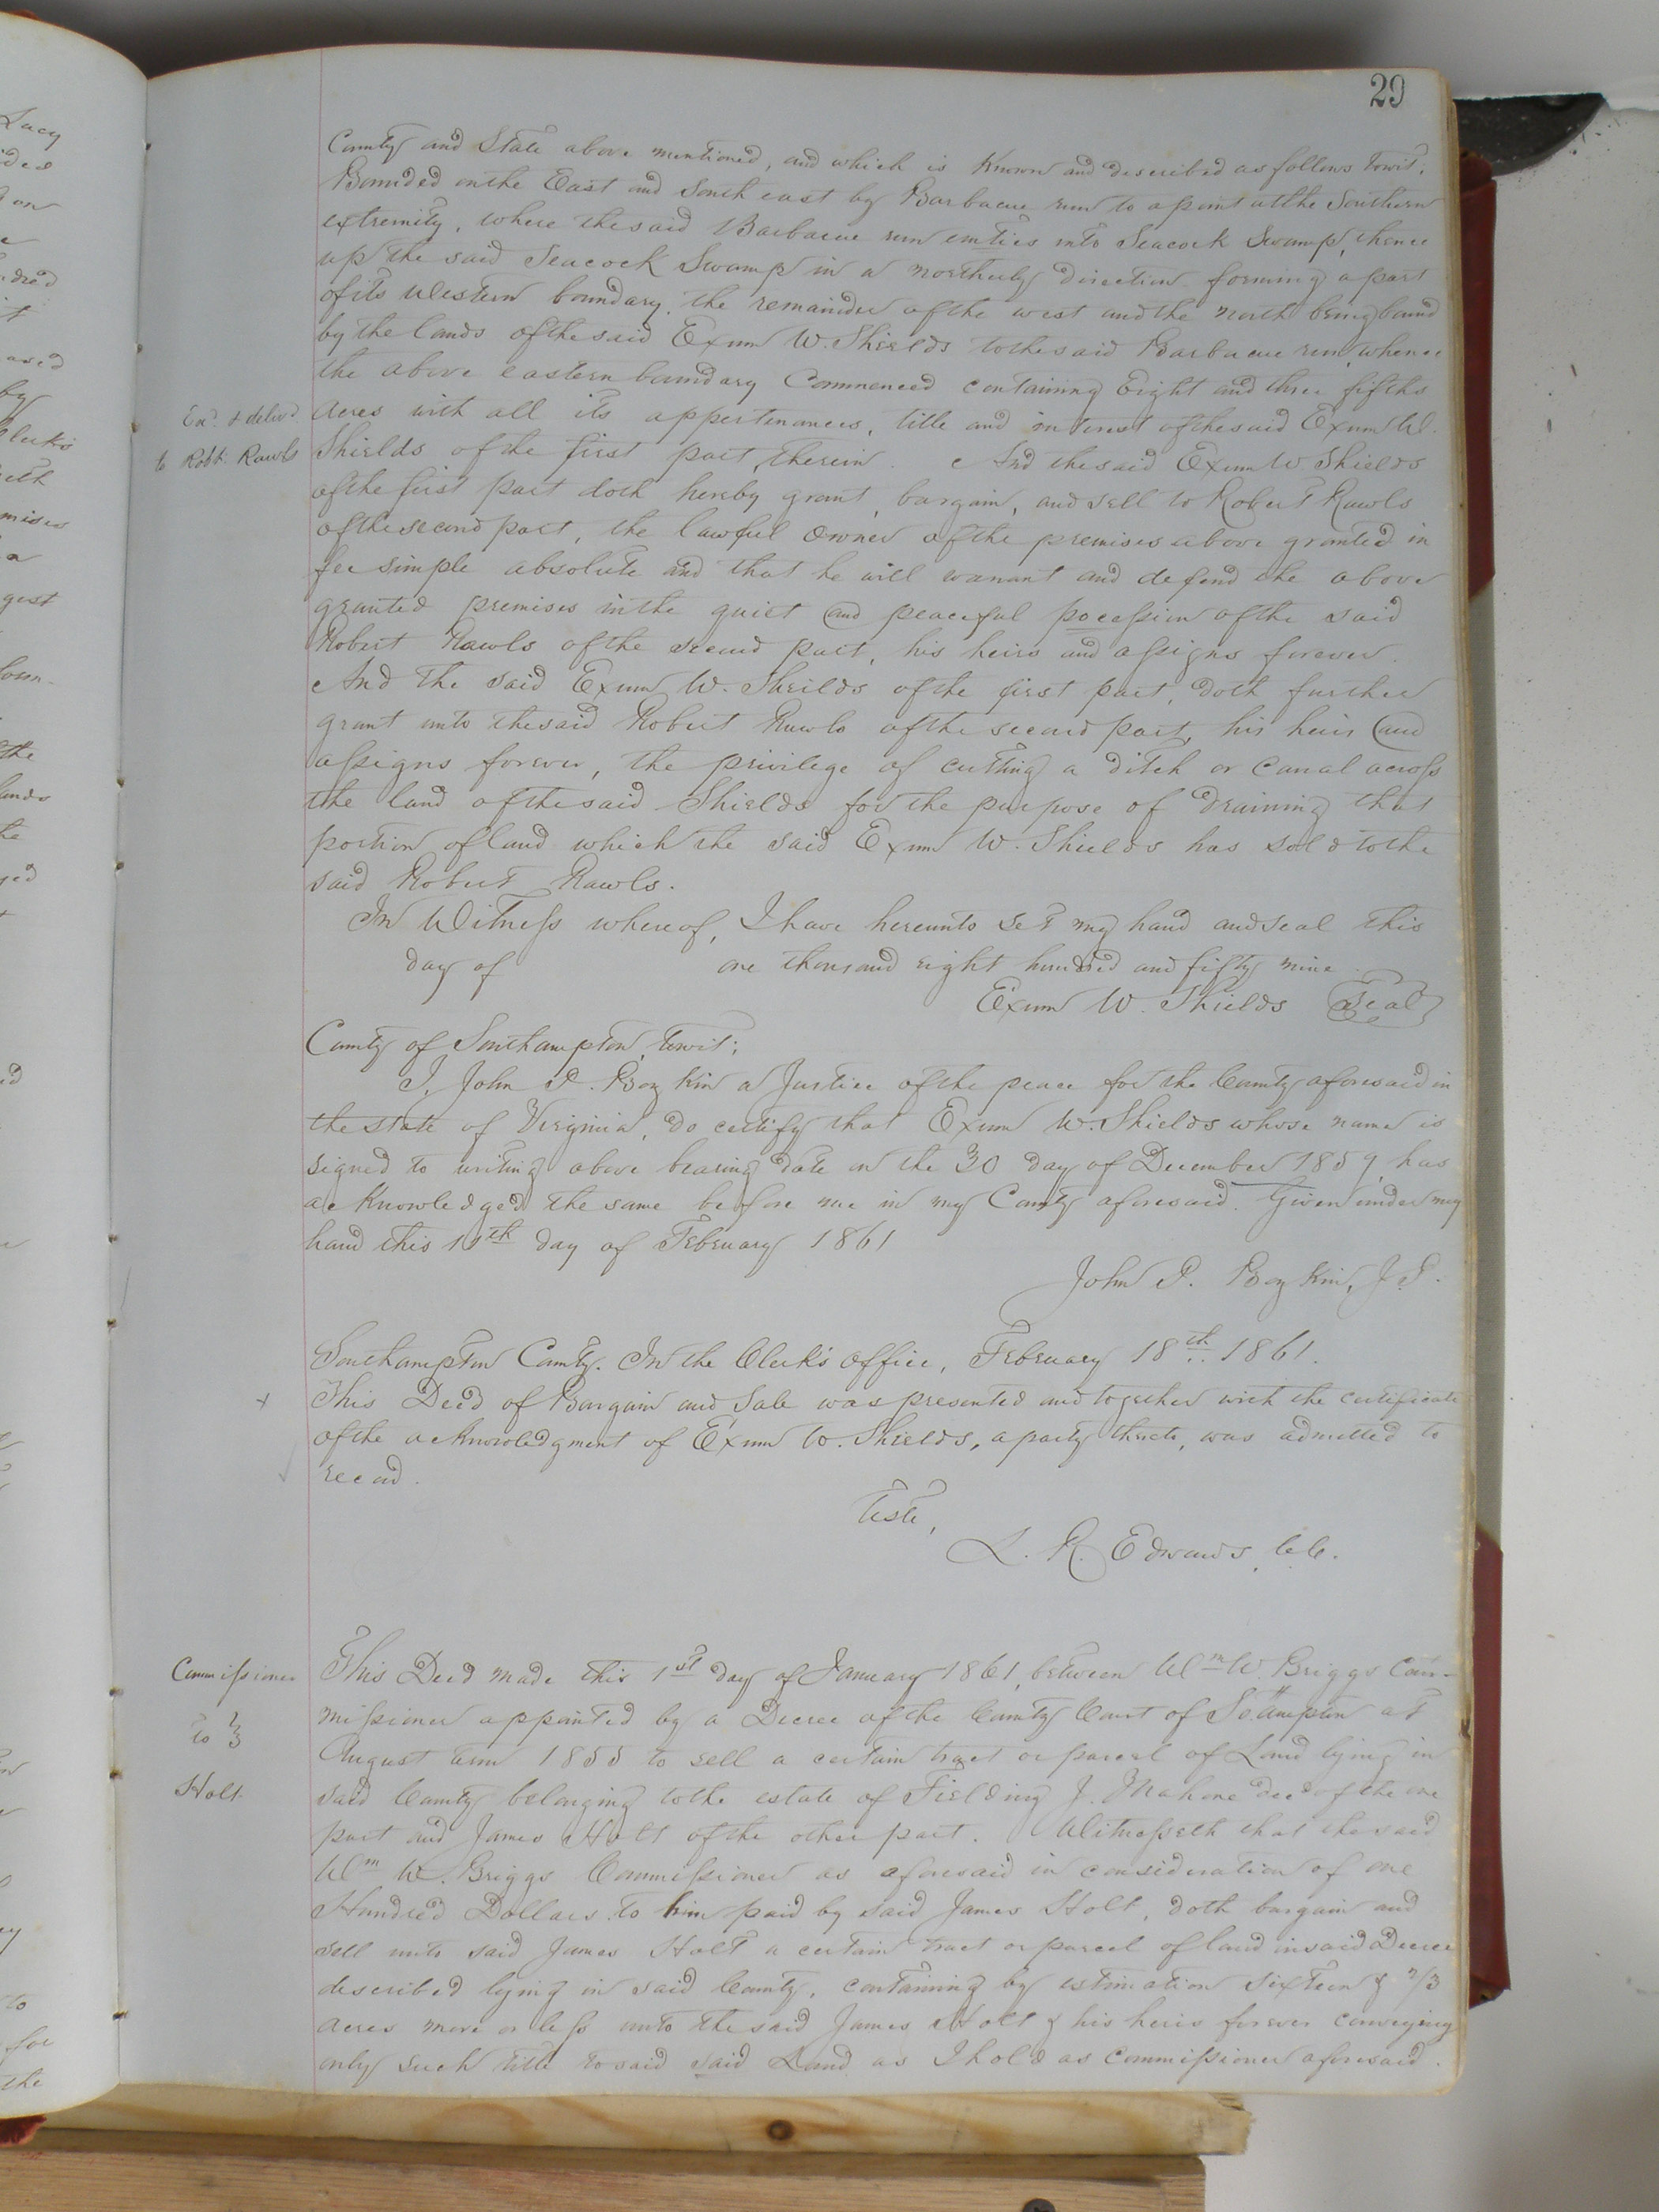 29
County and State above mentioned, and which is Known and described as follows Towit;
Bounded on the East and South east by Barbacue run to a point at the Southern
extremity, where the said Barbacue run emties into Seacock Swamp, thence
up the said Seacock Swamp in a northerly direction forming a part
of its Western boundary. the remainder of the west and the north being bound
by the lands of the said Exum W. Shields to the said Barbacue run, whence
the above eastern boundary Commenced containing Eight and three fifths
Exd. & delivd.
acres with all its appertenances, title and interest of the said Exum W.
to Robt. Rawls
Shields of the first part, therein. And the said Exum W Shields
of the first part doth hereby grant, bargain, and sell to Robert Rawls
of the second part, the lawful owner of the premises above granted in
fee simple absolute and that he will warrant and defend the above
granted premises in the quiet and peaceful pocession of the said
Robert Rawls of the second part, his heirs and assigns forever.
And the said Exum W. Sheilds of the first part, doth further
grant unto the said Robert Rawls of the second part, his heirs and
assigns forever, the privilege of cutting a ditch or canal across
the land of the said Shields for the purpose of draining that
portion of land which the said Exum W. Shields has sold to the
said Robert Rawls.
In Witness whereof, I have hereunto set my hand and seal this
day of one thousand eight hundred and fifty nine.
Exum W. Shields Seal
County of Southampton, towit;
I, John P. Boykin a Justice of the peace for the County aforesaid in
the state of Virginia, do certify that Exum W. Shields whose name is
signed to writing above bearing date on the 30 day of December 1859, has
acknowledged the same before me in my County aforesaid. Given under my
hand this 11th day of February 1861
John P. Boykin, J.P.
Southampton County. In the Clerk's office, February 18th 1861.
This Deed of Bargain and Sale was presented and together with the certificate
of the acknowledgment of Exum W. Shields, a party thereto, was admitted to
record.
Teste,
L. R. Edwards, C.C.
Commissioner
to
Holt
This Deed made this 1st day of January 1861, between Wm W. Briggs Com-
missioner appointed by a Decree of the County Court of So.Hampton at
August term 1855 to sell a certain tract or parcel of Land lying in
said County belonging to the estate of Fielding J. Mahone decd of the one
part and James Holt of the other part. Witnesseth that the said
Wm W. Briggs Commissioner as aforesaid in consideration of one
Hundred Dollars to him paid by said James Holt, doth bargain and
sell unto said James Holt a certain tract or parcel of land in said Decree
described lying in said County, containing by estimation sixteen & 2/3
acres more or less unto the said James Holt & his heirs forever conveying
only such title to said said Land as I hold as Commissioner aforesaid.